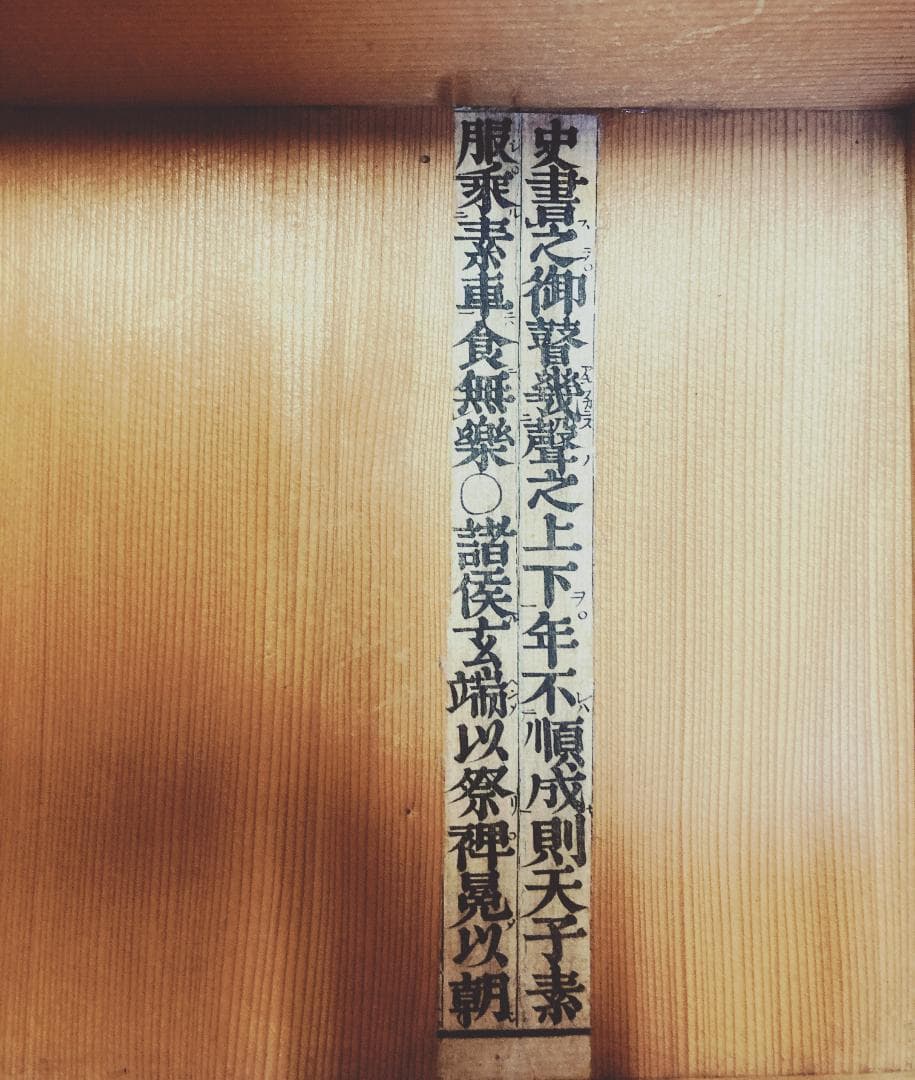 史書之御瞽幾聲之上下年不順成則天子素
服乘素車食無樂○諸侯玄端以祭裨冕以朝